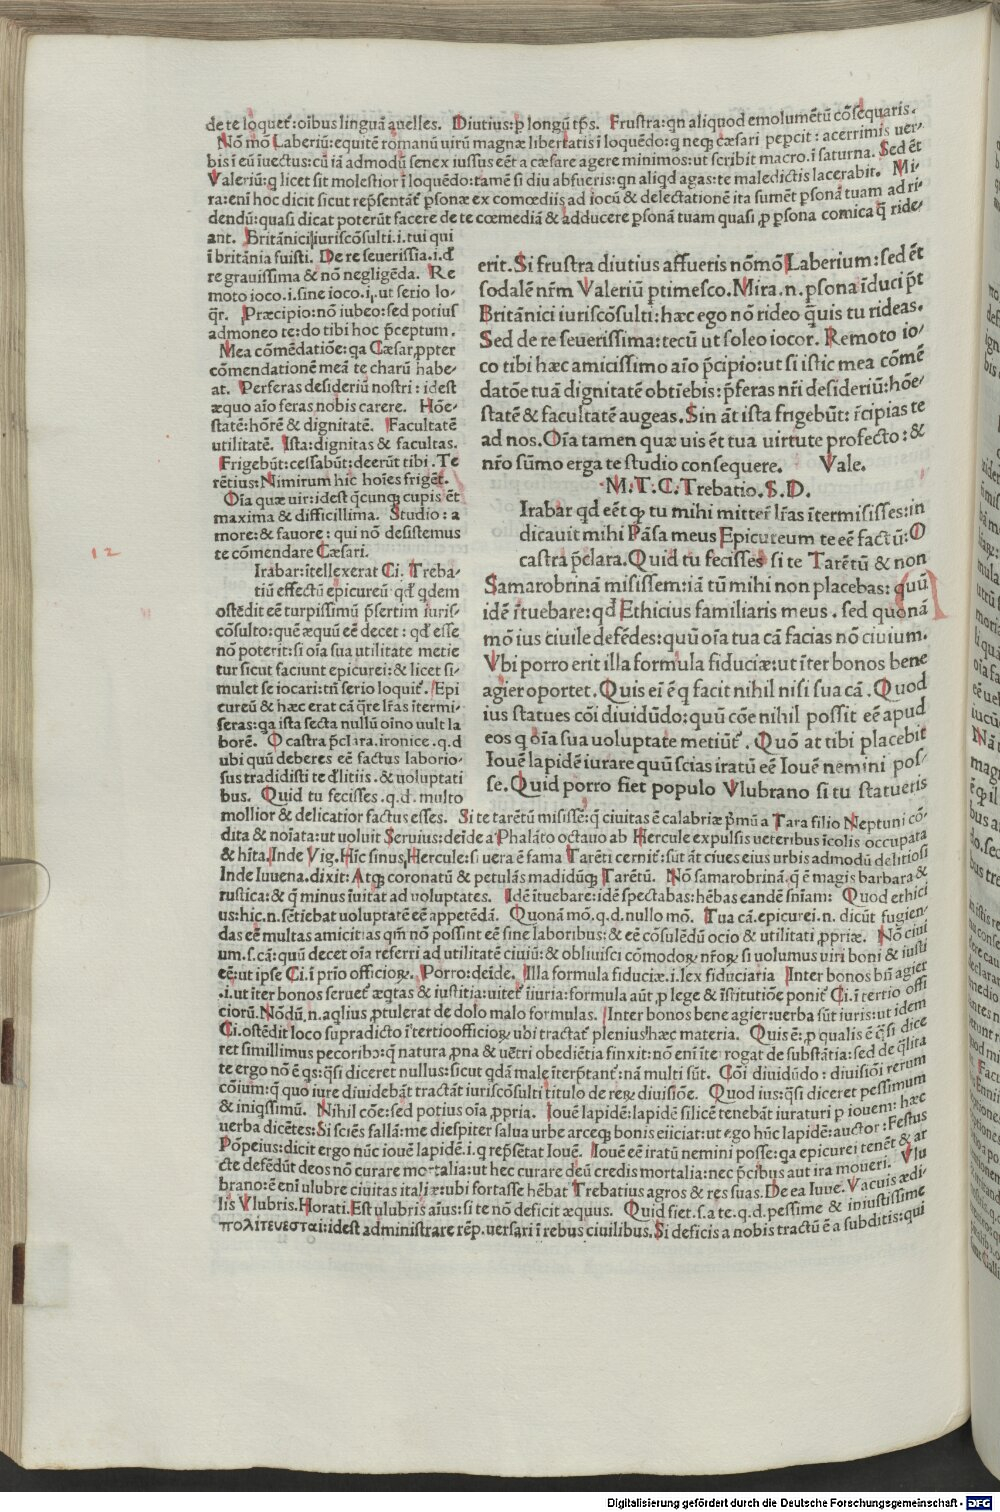 de te loquet᷑: oībus linguā auelles. Diutius: ꝑ longū tꝑs. Frustra: qn aliquod emolumētū cōsequaris.
Nō mō Laberiū: equitē romanū uirū magnæ libertatis ī loquēdo: q neqꝫ cæsari peꝑcit: acerrimis uer-
bis ī eū īuectus: cū iā admodū senex iussus eēt a cæsare agere minimos: ut scribit macro. ī saturna. Sed ēt
Valeriū: q licet sit molestior ī loquēdo: tamē si diu abfueris: qn aliqd agas: te maledictis lacerabit. Mi-
ra: eni hoc dicit sicut rep̄sentāt᷑ ꝑsonæ ex comœdiis ad iocū & delectationē ita sumēt ꝑsonā tuam ad ri-
dendū: quasi dicat poterūt facere de te cœmediā & adducere ꝑsonā tuam quasi ꝓ ꝑsona comica q̄ ride-
ant. Britānici iuriscōsulti .i. tui qui
ī britānia fuisti. De re seuerissia .i. d̄
re grauissima & nō negligēda. Re
moto ioco .i. sine ioco .i. ut serio lo-
q̄r. Præcipio: nō iubeo: sed potius
admoneo te: do tibi hoc p̄ceptum.
Mea cōmēdatiōe: qa Cæsar ꝓpter
cōmendationē meā te charū habe-
at. Perferas desideriū nostri: idest
æquo aīo feras nobis carere. Hōe-
statē: hōrē & dignitatē. Facultatē
utilitatē. Ista: dignitas & facultas.
Frigebūt: cessabūt: deerūt tibi. Te
rētius: Nimirum hic hoīes friget.
Oīa quæ uir: idest q̄cunqꝫ cupis ēt
maxima & difficillima. Studio: a
more: & fauore: qui nō desistemus
te cōmendare Cæsari.
12
Irabar: ītellexerat Ci. Treba-
tiū effectū epicureū qd̄ qdem
ostēdit eē turpissimū p̄sertim iuris-
cōsulto: quē æquū eē decet: qd̄ esse
nō poterit: si oīa sua utilitate metie
tur sicut faciunt epicurei: & licet si-
mulet se iocari: tn̄ serio loquit᷑. Epi
cureū & hæc erat cā q̄re lr̄as ītermi-
seras: qa ista secta nullū oīno uult la
borē. O castra p̄clara. ironice .q.d
ubi quū deberes eē factus laborio-
sus tradidisti te d̄litiis .& uoluptati
bus. Quid tu fecisses .q.d. multo
erit. Si frustra diutius affueris nō mō Laberium: sed ēt
sodalē nr̄m Valeriū ꝑtimesco. Mira .n. ꝑsona īduci p̄t
Britānici iuriscōsulti: hæc ego nō rideo q̄uis tu rideas.
Sed de re seuerissima: tecū ut soleo iocor. Remoto io-
co tibi hæc amicissimo aīo p̄cipio: ut si istic mea cōmē
datōe tuā dignitatē obtīebis: ꝑferas nr̄i desideriū: hōe-
statē & facultatē augeas. Sin āt ista frigebūt: r̄cipias te
ad nos. Oīa tamen quæ uis ēt tua uirtute profecto: &
nr̄o sūmo erga te studio consequere. Vale.
M. T. C. Trebatio. S. D.
Irabar qd eēt qꝫ tu mihi mitter᷑ lr̄as ītermisisses: in
dicauit mihi Pāsa meus Epicuteum te eē factū: O
castra p̄clara. Quid tu fecisses si te Tarētū & non
Samarobrinā misissem: iā tū mihi non placebas: quū
idē ītuebare: qd̄ Ethicius familiaris meus. sed quonā
mō ius ciuile defēdes: quū oīa tua cā facias nō ciuium.
Vbi porro erit illa formula fiduciæ: ut īter bonos bene
agier oportet. Quis eī ē q̄ facit nihil nisi sua cā. Quod
ius statues cōi diuidūdo: quū cōe nihil possit eē apud
eos q oīa sua uoluptate metiūt᷑. Quō at tibi placebit
Iouē lapidē iurare quū scias iratū eē Iouē nemini pos-
se. Quid porro fiet populo Vlubrano si tu statueris
mollior & delicatior factus esses. Si te tarētū misissē: q̄ ciuitas ē calabriæ p̄mū a Tara filio Neptuni cō-
dita & noīata: ut uoluit Seruius: deīde a Phalāto octauo ab Hercule expulsis ueteribus īcolis occupata
& hīta. Inde Vig. Hic sinus Hercule: si uera ē fama Tarēti cernit᷑: sūt āt ciues eius urbis admodū delitiosi
Inde Iuuena. dixit: Atqꝫ coronatū & petulās madidūqꝫ Tarētū. Nō samarobrinā. q̄ ē magis barbara &
rustica: & q̄ minus īuitat ad uoluptates. Idē ītuebare: idē spectabas: hēbas eandē sn̄iam: Quod ethici
us: hic .n. sētiebat uoluptatē eē appetēdā. Quonā mō. q.d. nullo mō. Tua cā. epicurei .n. dicūt fugien-
das eē multas amicitias qm̄ nō possint eē sine laboribus: & eē cōsulēdū ocio & utilitati ꝓpriæ. Nō ciui
um .s. cā: quū decet oīa referri ad utilitatē ciuiū: & obliuisci cōmodoꝝ nr̄oꝝ si uolumus uiri boni & iusti
eē: ut ipse Ci. ī prīo officioꝝ. Porro: deīde. Illa formula fiduciæ .i. lex fiduciaria Inter bonos bn̄ agier
.i. ut īter bonos seruet᷑ æqtas & iustitia: uitet᷑ īiuria: formula aūt ꝓ lege & īstitutiōe ponit᷑ Ci. ī tertio offi
ciorū. Nōdū .n. aqlius ꝓtulerat de dolo malo formulas. Inter bonos bene agier: uerba sūt iuris: ut idem
Ci. ostēdit loco supradicto ī tertio officioꝝ ubi tractat᷑ plenius hæc materia. Quis ē: ꝓ qualis ē q̄si dice
ret simillimus pecoribꝰ: q̄ natura ꝓna & uētri obediētia finxit: nō eni īterrogat de substātia: sed de q̄lita
te ergo nō ē qs: q̄si diceret nullus: sicut qdā male īterp̄tant᷑: nā multi sūt. Cōi diuidūdo: diuisiōi rerum
cōium: q̄ quo iure diuidebāt tractāt iuriscōsulti titulo de reꝝ diuisiōe. Quod ius: q̄si diceret pessimum
& iniqssimū. Nihil cōe: sed potius oīa ꝓpria. Iouē lapidē: lapidē silicē tenebāt iuraturi ꝑ iouem: hæc
uerba dicētes: Si sciēs fallā: me diespiter salua urbe arceqꝫ bonis eiiciat: ut ego hūc lapidē: auctor: Festus
Pōpeius: dicit ergo nūc iouē lapidē .i. q rep̄setat Iouē. Iouē eē iratū nemini posse: qa epicurei tenēt & ar
cte defēdūt deos nō curare mortalia: ut hec curare deū credis mortalia: nec p̄cibus aut ira moueri. Vlu
brano: ē eni ulubre ciuitas italiæ: ubi fortasse hēbat Trebatius agros & res suas. De ea Iuue. Vacuis ædi-
lis Vlubris. Horati. Est ulubris aīus: si te nō deficit æquus. Quid fiet .s. a te .q.d. pessime & iniustissime
πολιτευεσται: idest administrare rēp. uersari ī rebus ciuilibus. Si deficis a nobis tractū ē a subditis: qui
Digitalisierung gefördert durch die Deutsche Forschungsgemeinschaft - DFG